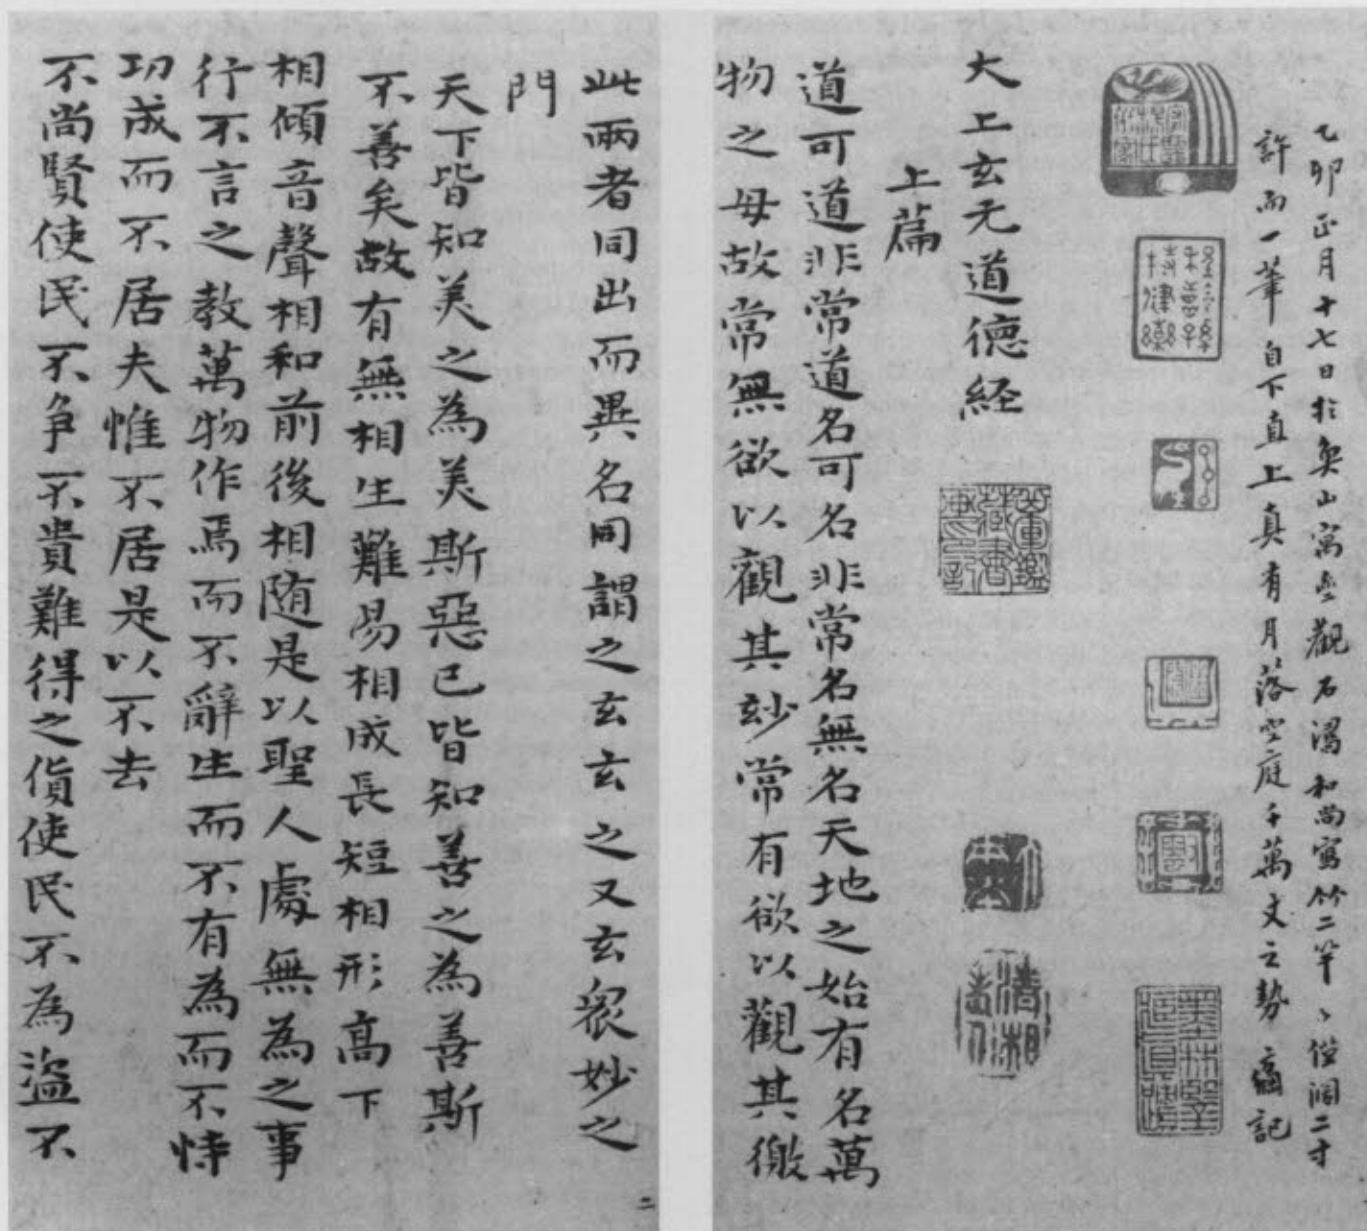 乙卯正月十七日於奐山寓亝觀石濤和尚寫竹二竿〻僅濶二寸
許而一筆自下直上真有月落空庭千萬丈之勢 記
大上玄元道德経
上萹
道可道非常道名可名非常名無名天地之始有名萬
物之母故常無欲以觀其玅常有欲以觀其徼
此兩者同出而異名同謂之玄玄之又玄衆妙之
門
天下皆知美之為美斯惡已皆知善之為善斯
不善矣故有無相生難易相成長短相形高下
相傾音聲相和前後相随是以聖人處無為之事
行不言之教萬物作焉而不辭生而不有為而不恃
功成而不居夫惟不居是以不去
不尚賢使民不争不貴難得之貨使民不為盜不
二